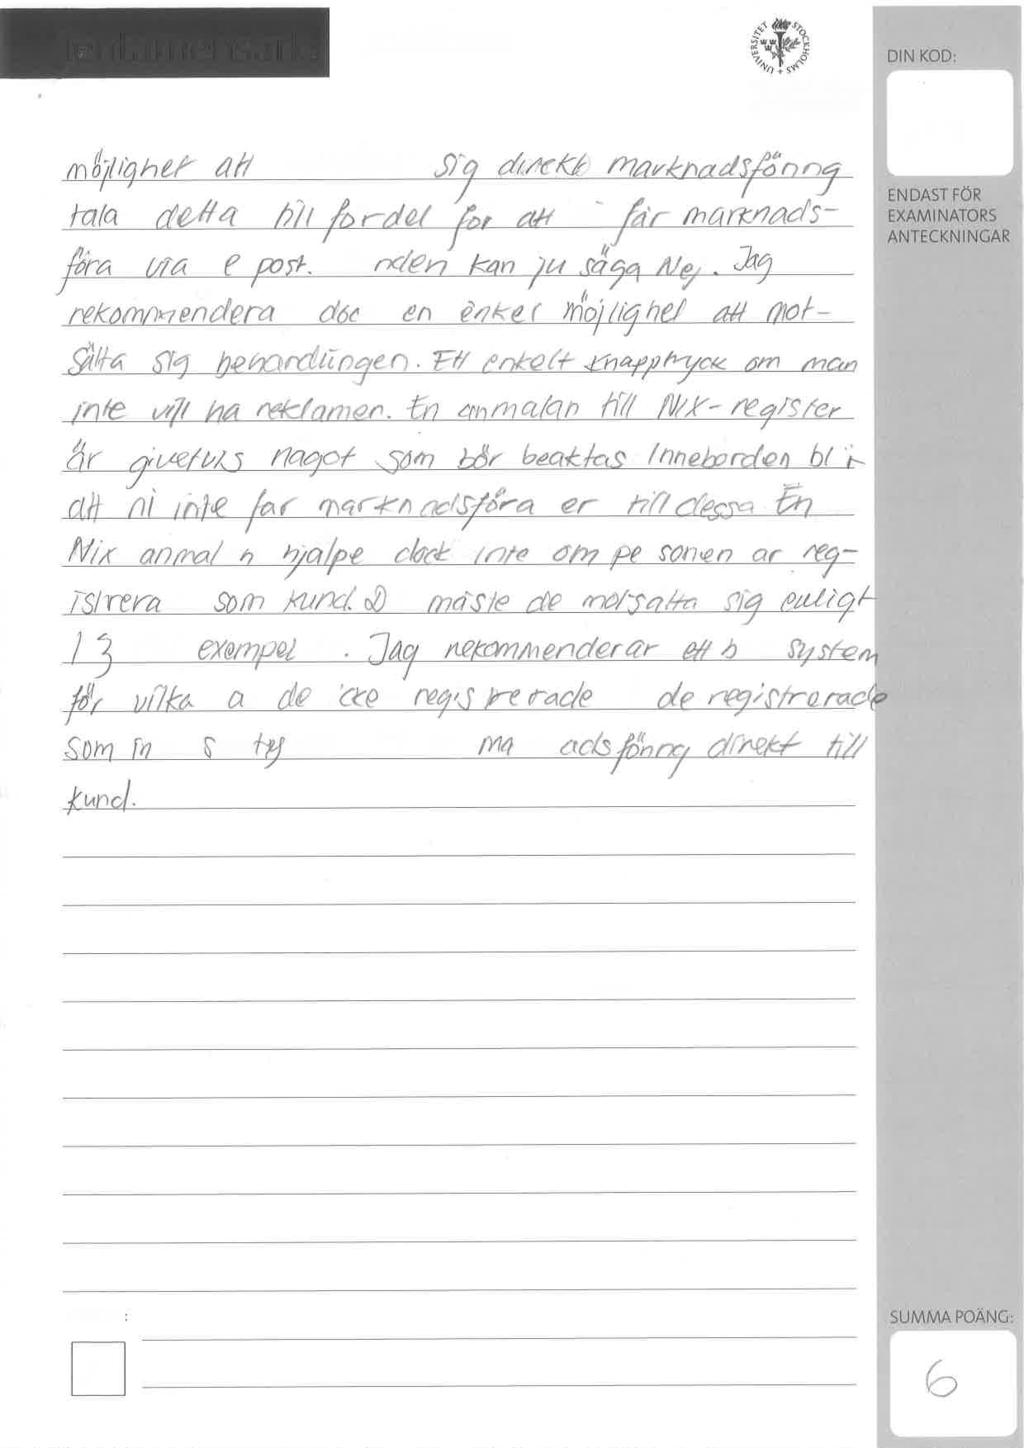 UNIVERSITET STOCKHOLMS
DIN KOD:
ENDAST FÖR
EXAMINATORS
ANTECKNINGAR
möjlighet att sig direkt marknadsföring
tala detta till fördel för att får marknads-
föra via e post. nden kan ju säga Nej. Jag
rekommendera doc en enkel möjlighet att mot-
sätta sig behandlingen. Ett enkelt knapptryck om man
inte vill ha reklamen. En anmälan till NIX-register
är givetvis något som bör beaktas Innebörden bli
att ni inte får marknadsföra er till dessa En
Nix anmäl n hjälpe dock inte om pe sonen är reg-
istrera som kund. D måste de motsätta sig enligt
13 exempel . Jag rekommenderar ett b system
för vilka a de icke regis rerade de registrerade
som in s ma adsföring direkt till
kund.
:
SUMMA POÄNG:
6